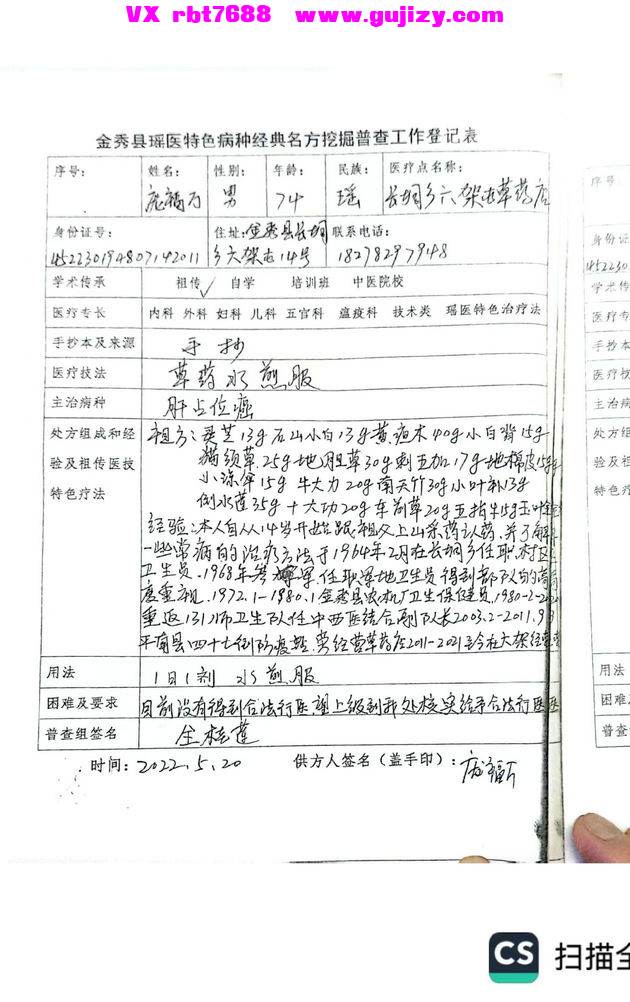 VX rbt7688 www.gujizy.com
金秀县瑶医特色病种经典名方挖掘普查工作登记表
序号: 姓名: 性别: 年龄: 民族: 医疗点名称:
庞福万 男 74 瑶 长垌乡六架屯草药店
身份证号: 住址:金秀县长垌 联系电话:
452230194807142011 乡六架屯14号 18278297948
学术传承 祖传 自学 培训班 中医院校
医疗专长 内科 外科 妇科 儿科 五官科 瘟疫科 技术类 瑶医特色治疗法
手抄本及来源 手抄
医疗技法 草药水煎服
主治病种 肝占位癌
处方组成和经 祖方:灵芝13g 石山小白13g 黄疸木40g 小白背15g
验及祖传医技 猫须草25g 地胆草30g 刺五加17g 地棉皮15g
特色疗法 15g 牛大力20g 南天竹30g 小叶13g
倒水莲35g 十大功20g 车前草20g 五指牛15g 玉叶金
经验:本人自从14岁开始跟祖父上山采药认药,并了解
一些常病的治疗方法于1964年2月在长垌乡任职村及
卫生员.1968年 任职军地卫生员得到部队的高
度重视.1972.1-1980.1金秀县农机厂卫生保健员,1980-2-
重返131师卫生队任中西医结合副队长2003.2-2011.9
平南县四十七 经营草药店2011-2021至今在六架经
用法 1日1剂 水煎服
困难及要求 目前没有得到合法行医,望上级到我处核实给予合法行医
普查组签名 全桂莲
时间: 2022.5.20 供方人签名(盖手印): 庞福万
序号
身份证
452230
学术传
医疗专
手抄本
医疗技
主治病
处方组
验及祖
特色疗
用法
困难及
普查组
CS 扫描全